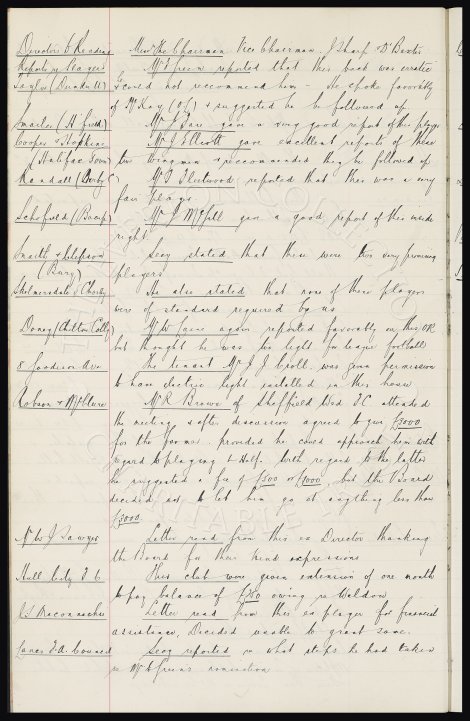 Directors & Reading Messrs The Chairman, Vice Chairman, J Sharp & D Baxter
Reports of Players Mr Green reported that this back was erratic
Taylor & could not recommend him - He spoke favorably
of McKay (O/) & suggested he be followed up.
Mr gave a very good report of this player
Cooper & Hopkins Mr J Elliott gave excellent reports of these
(Halifax Town) two wingmen & recommended they be followed up
Randall (Derby C) Mr Fleetwood reported that this was a very
fair player
Schofield Mr J gave a good report of this inside
right
Smith & Secy stated that these were two very promising
(Bury) players
Skelmersdale & Chorley He also stated that none of these players
were of standard required by us
Mr again reported favorably on this OR
but thought he was too light for league football
8 Goodison Ave The tenant Mr J J was given permission
to have electric light installed in this house
Robson & Mr R Brown of Sheffield Wed F.C. attended
the meeting & after discussion agreed to give £3000
for the former provided he could approach him with
regard to playing L Half. With regard to the latter
he suggested a fee of £500 or £1000 but the Board
decided not to let him go at anything less than
£3000.
J Sawyer Letter read from this ex Director thanking
the Board for their kind expressions
Hull City F C This club were given extension of one month
to pay balance of owing re Weldon
J S Maconnachie Letter read from this ex player for financial
assistance, Decided unable to grant same.
Lancs F.A. Council Secy reported on what steps he had taken
re Mr Green's nomination